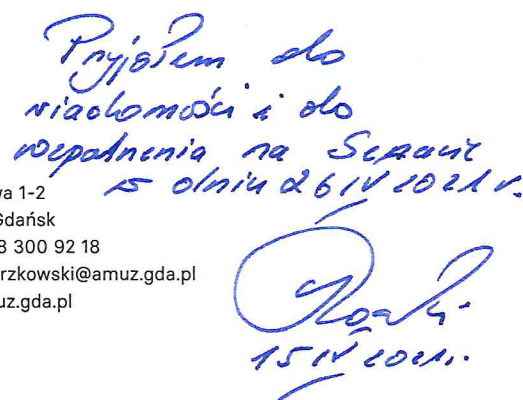 Przyjąłem do
wiadomości i do
rozpatrzenia na Senacie
w dniu 26 IV 2021 r.
wa 1-2
Gdańsk
8 300 92 18
rzkowski@amuz.gda.pl
uz.gda.pl
15 IV 2021r.